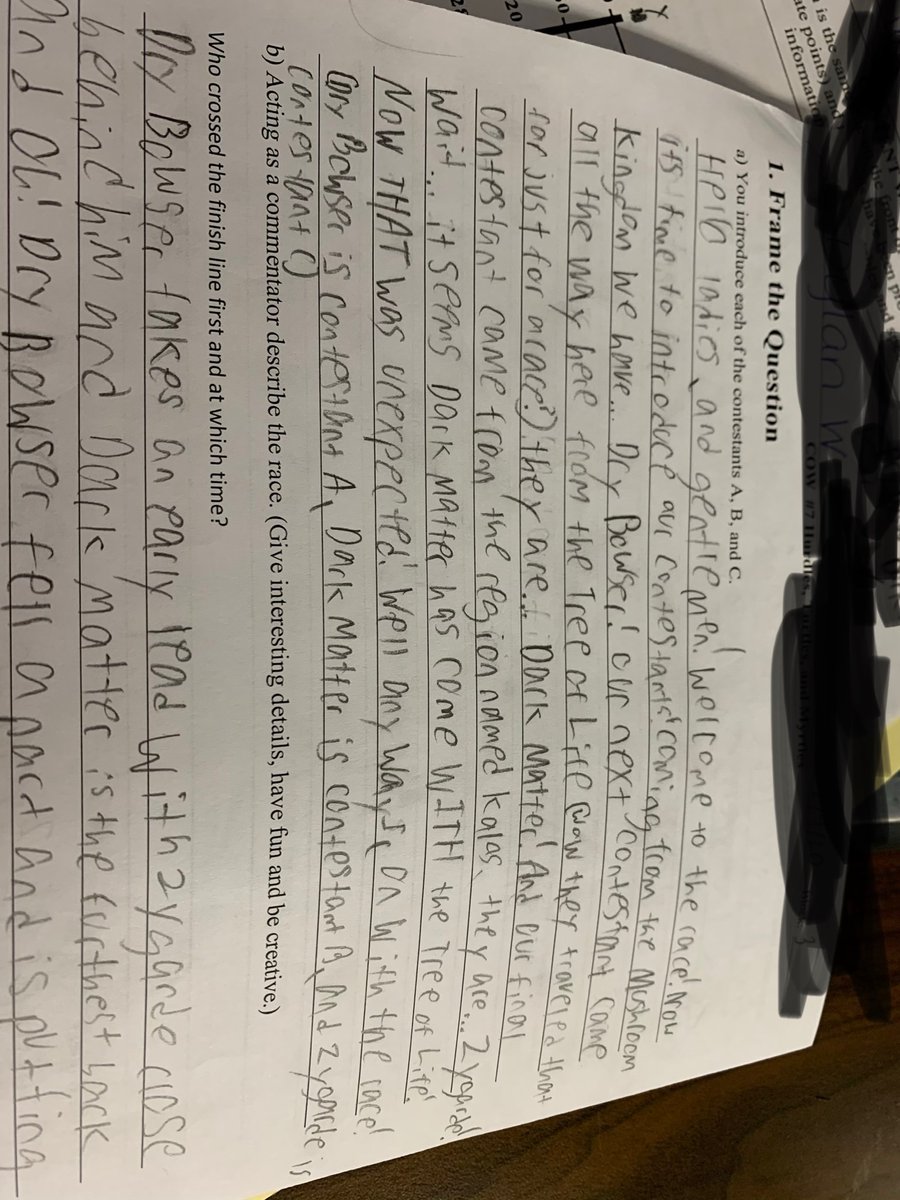 is the same
ate points) and
information
20
COW #7 Hurdles,
1. Frame the Question
a) You introduce each of the contestants A, B, and C.
Hello ladies and gentlemen! Welcome to the race! Now
its time to introduce our contestants! coming from the Mushroom
Kingdom we have... Dry Bowser! our next contestant came
all the way here from the Tree of Life (wow they traveled that
far just for a race?) they are... Dark Matter! And our final
contestant came from the region named kalos, they are... Zygarde!
Wait... it seems Dark Matter has come WITH the Tree of Life!
Now THAT was unexpected! Well any ways, on with the race!
(Dry Bowser is contestant A, Dark Matter is contestant B, and Zygarde is
contestant C)
b) Acting as a commentator describe the race. (Give interesting details, have fun and be creative.)
Who crossed the finish line first and at which time?
Dry Bowser takes an early lead with Zygarde close
behind him and Dark Matter is the furthest back
and Oh! Dry Bowser fell apart and is putting